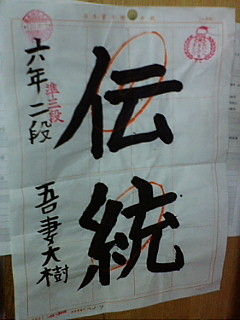 伝統
六年 二段
準三段
吾妻大樹